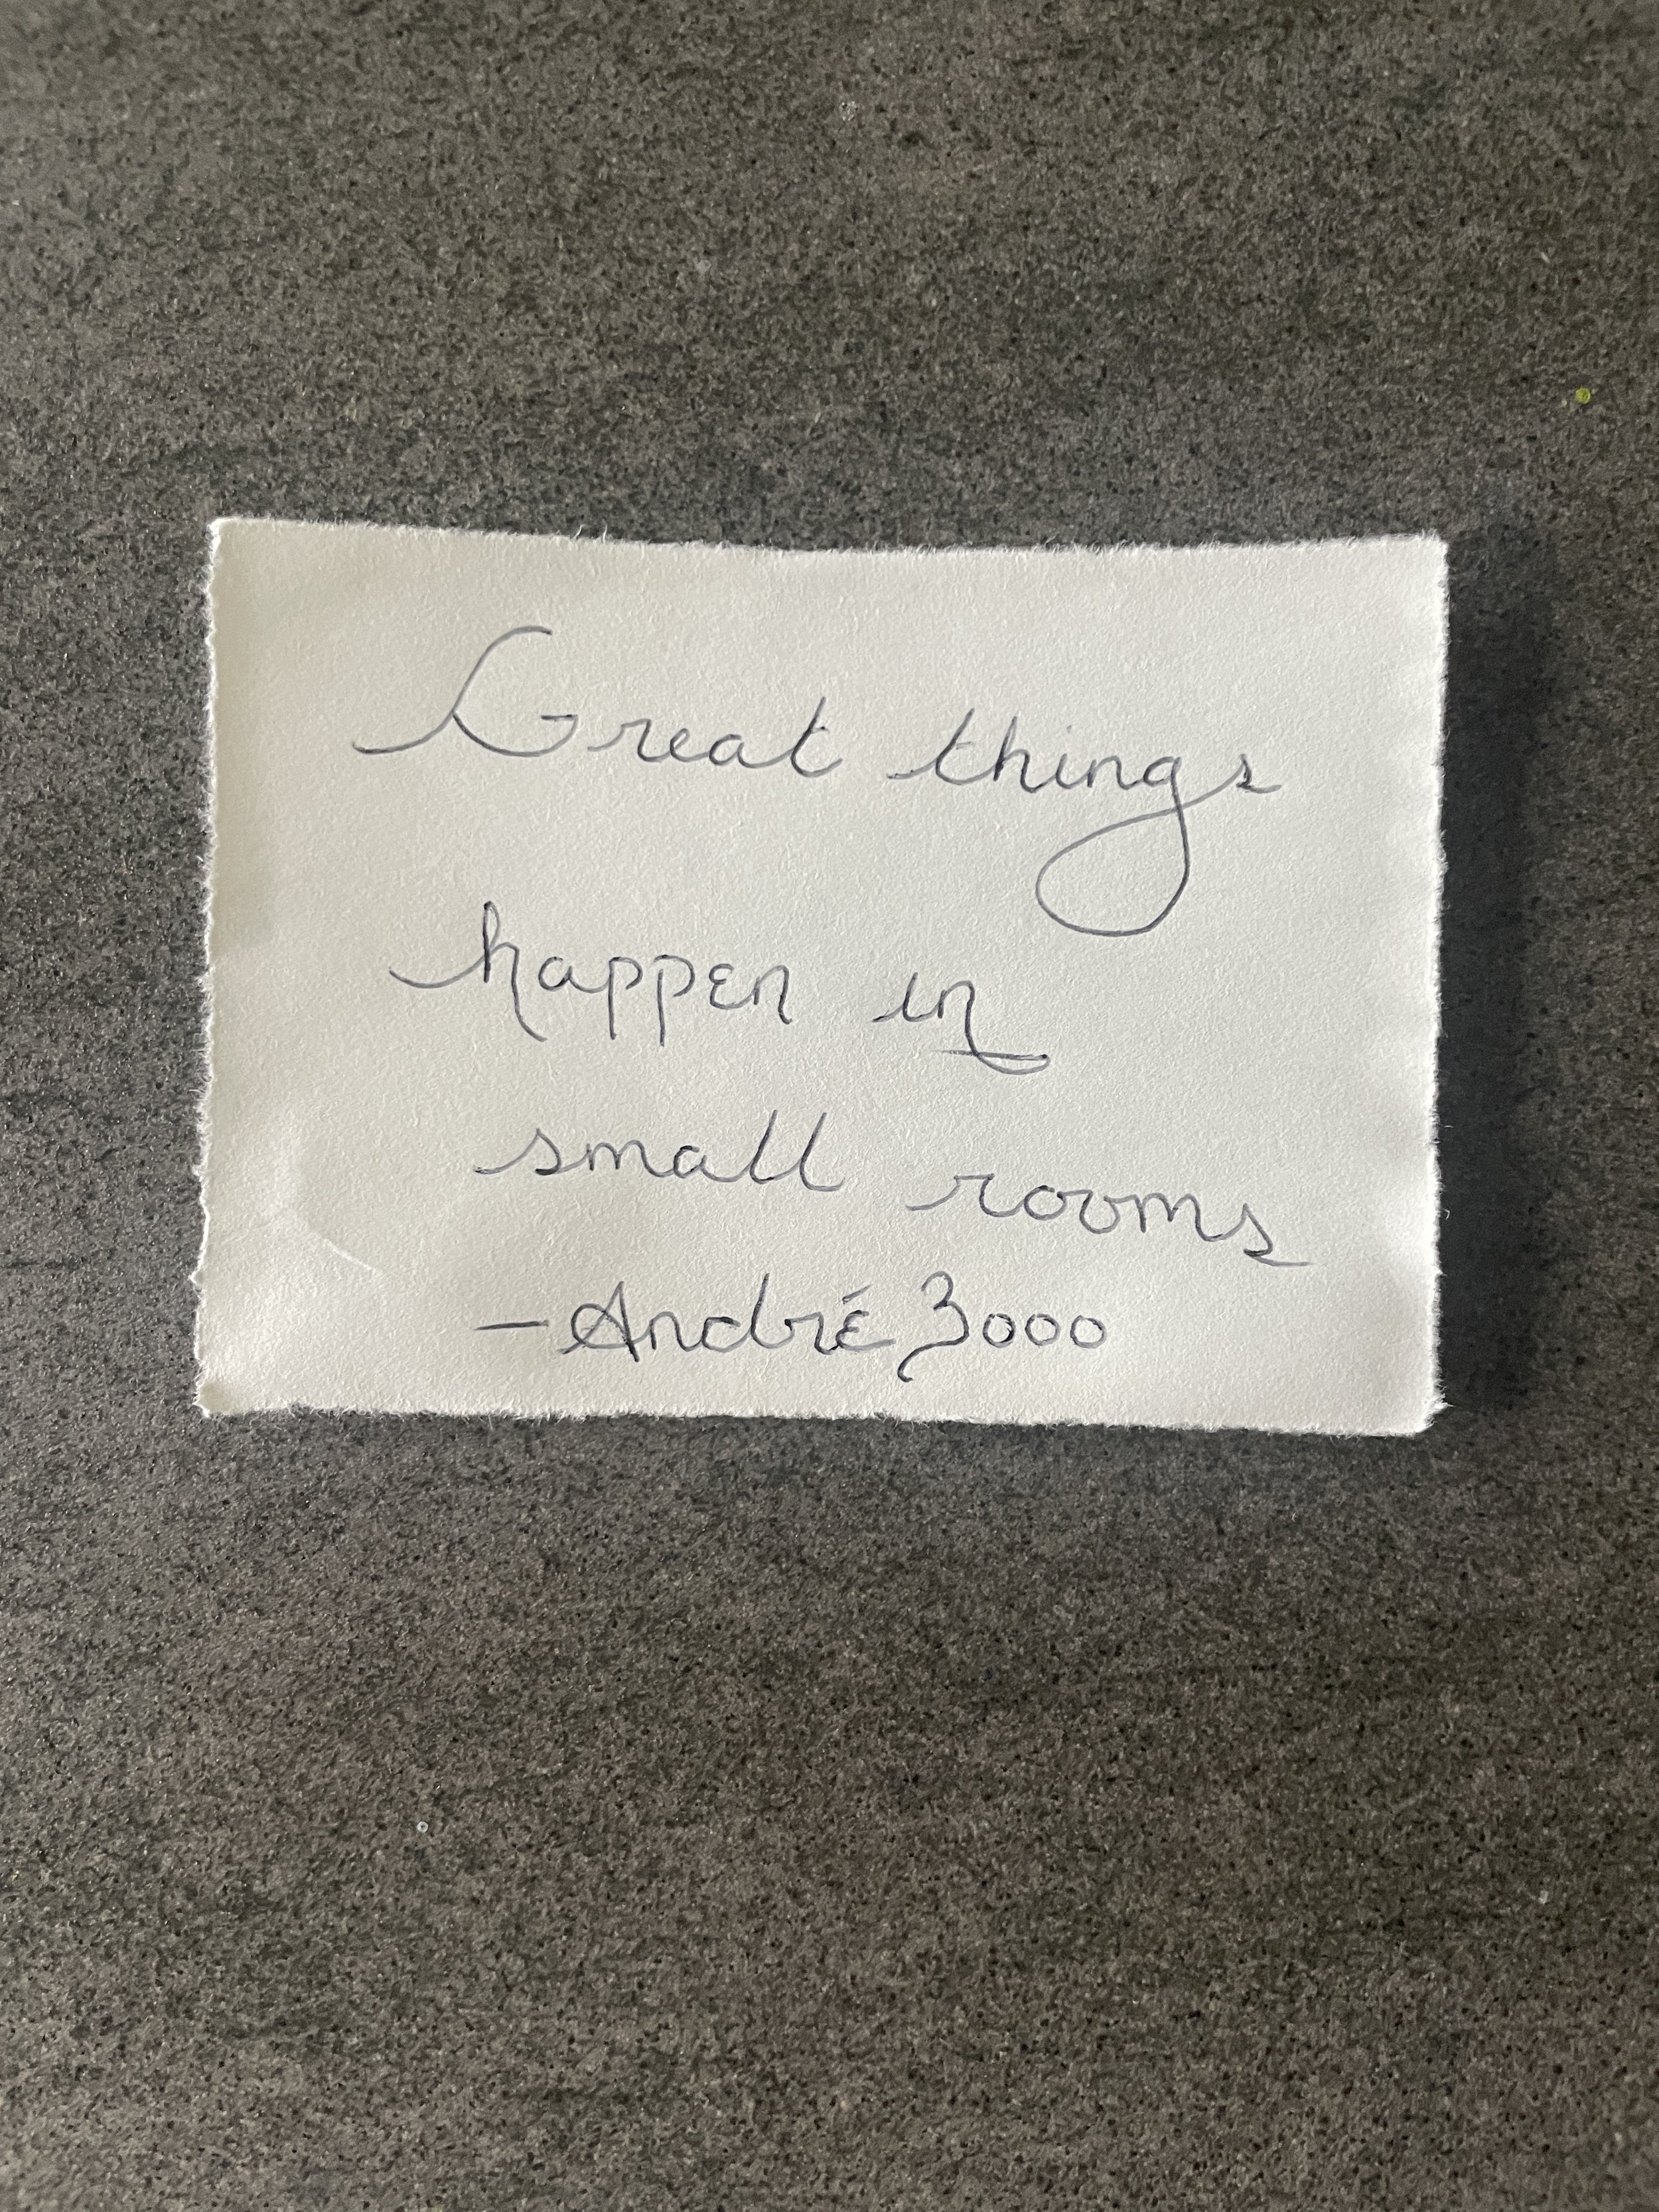 Great things
happen in
small rooms
- André 3000